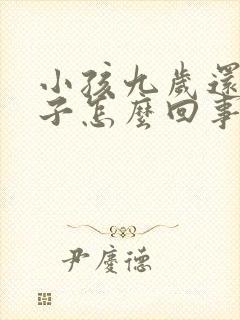 小孩九歲還
子怎麼回事
尹慶德